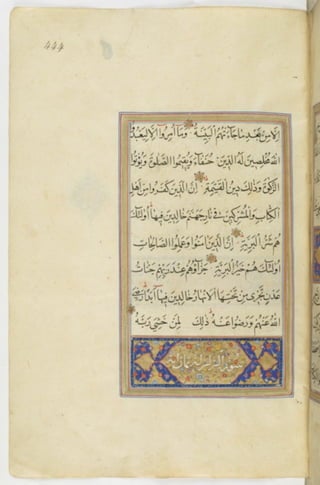 إلا من بعد ما جاءتهم البينة وما أمروا إلا ليعبدوا
الله مخلصين له الدين حنفاء ويقيموا الصلوة ويؤتوا
الزكوة وذلك دين القيمة إن الذين كفروا من أهل
الكتاب والمشركين في نار جهنم خالدين فيها أولئك
هم شر البرية إن الذين آمنوا وعملوا الصالحات
أولئك هم خير البرية جزاؤهم عند ربهم جنات
عدن تجري من تحتها الأنهار خالدين فيها أبدا رضي
الله عنهم ورضوا عنه ذلك لمن خشي ربه
سورة الزلزلة ثمان